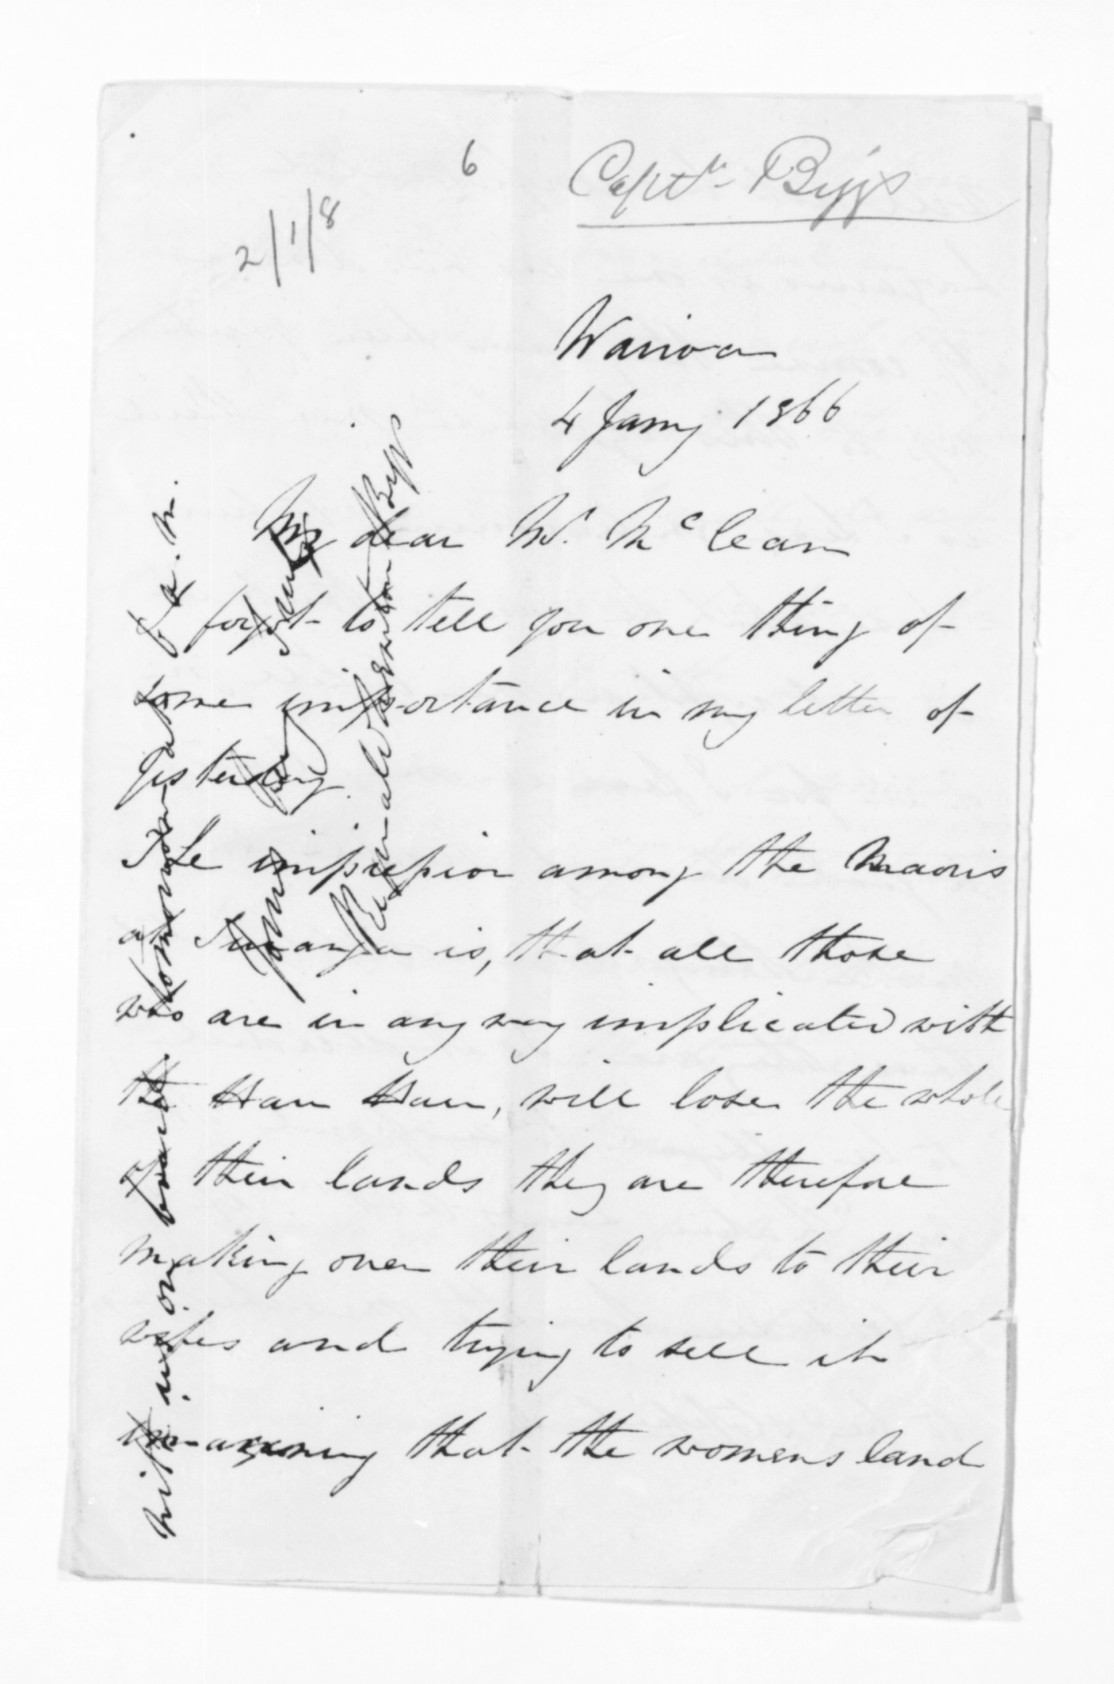 6
Captn. Biggs
2/1/8
Wairoa
4 Jany 1866
My dear Mr. McLean
I forgot to tell you one thing of
some importance in my letter of
yesterday.
The impression among the Maoris
at Turanga is, that all those
who are in any way implicated with
the Hau Hau, will lose the whole
of their lands they are therefore
making over their lands to their
wifes and trying to sell it
imagining that the womens land
will be on board tomorrow at 6 a.m.
Yours very truly
Reginald Newton Biggs